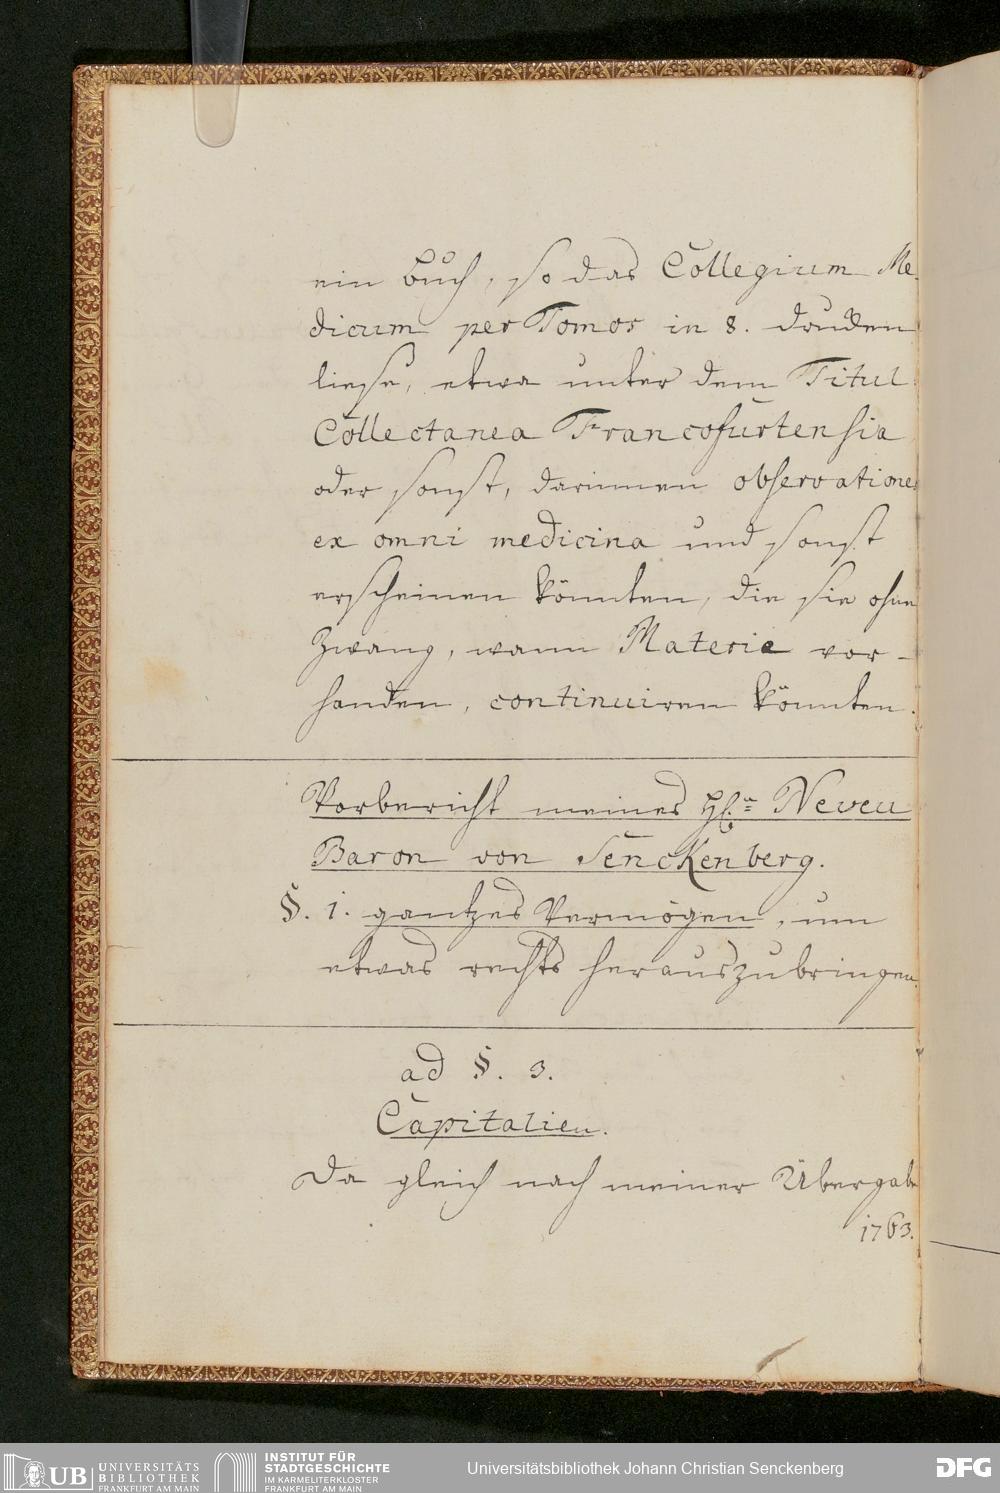 ein Buch, so das Collegium Me-
dicum per Tomos in 8. drucken
liese, etwa unter dem Titul
Collectanea Francofurtensia
oder sonst, darinnen observationes
ex omni medicina und sonst
erscheinen könnten, die sie ohne
Zwang, wann Materie vor-
handen, continuiren könnten.
Vorbericht meines H.n Neveu
Baron von Senckenberg.
§. 1. gantzes Vermögen, um
etwas rechts herauszubringen.
ad §. 3.
Capitalien.
Da gleich nach meiner Übergab
1763.
UB UNIVERSITÄTS
BIBLIOTHEK
FRANKFURT AM MAIN
INSTITUT FÜR
STADTGESCHICHTE
IM KARMELITERKLOSTER
FRANKFURT AM MAIN
Universitätsbibliothek Johann Christian Senckenberg
DFG